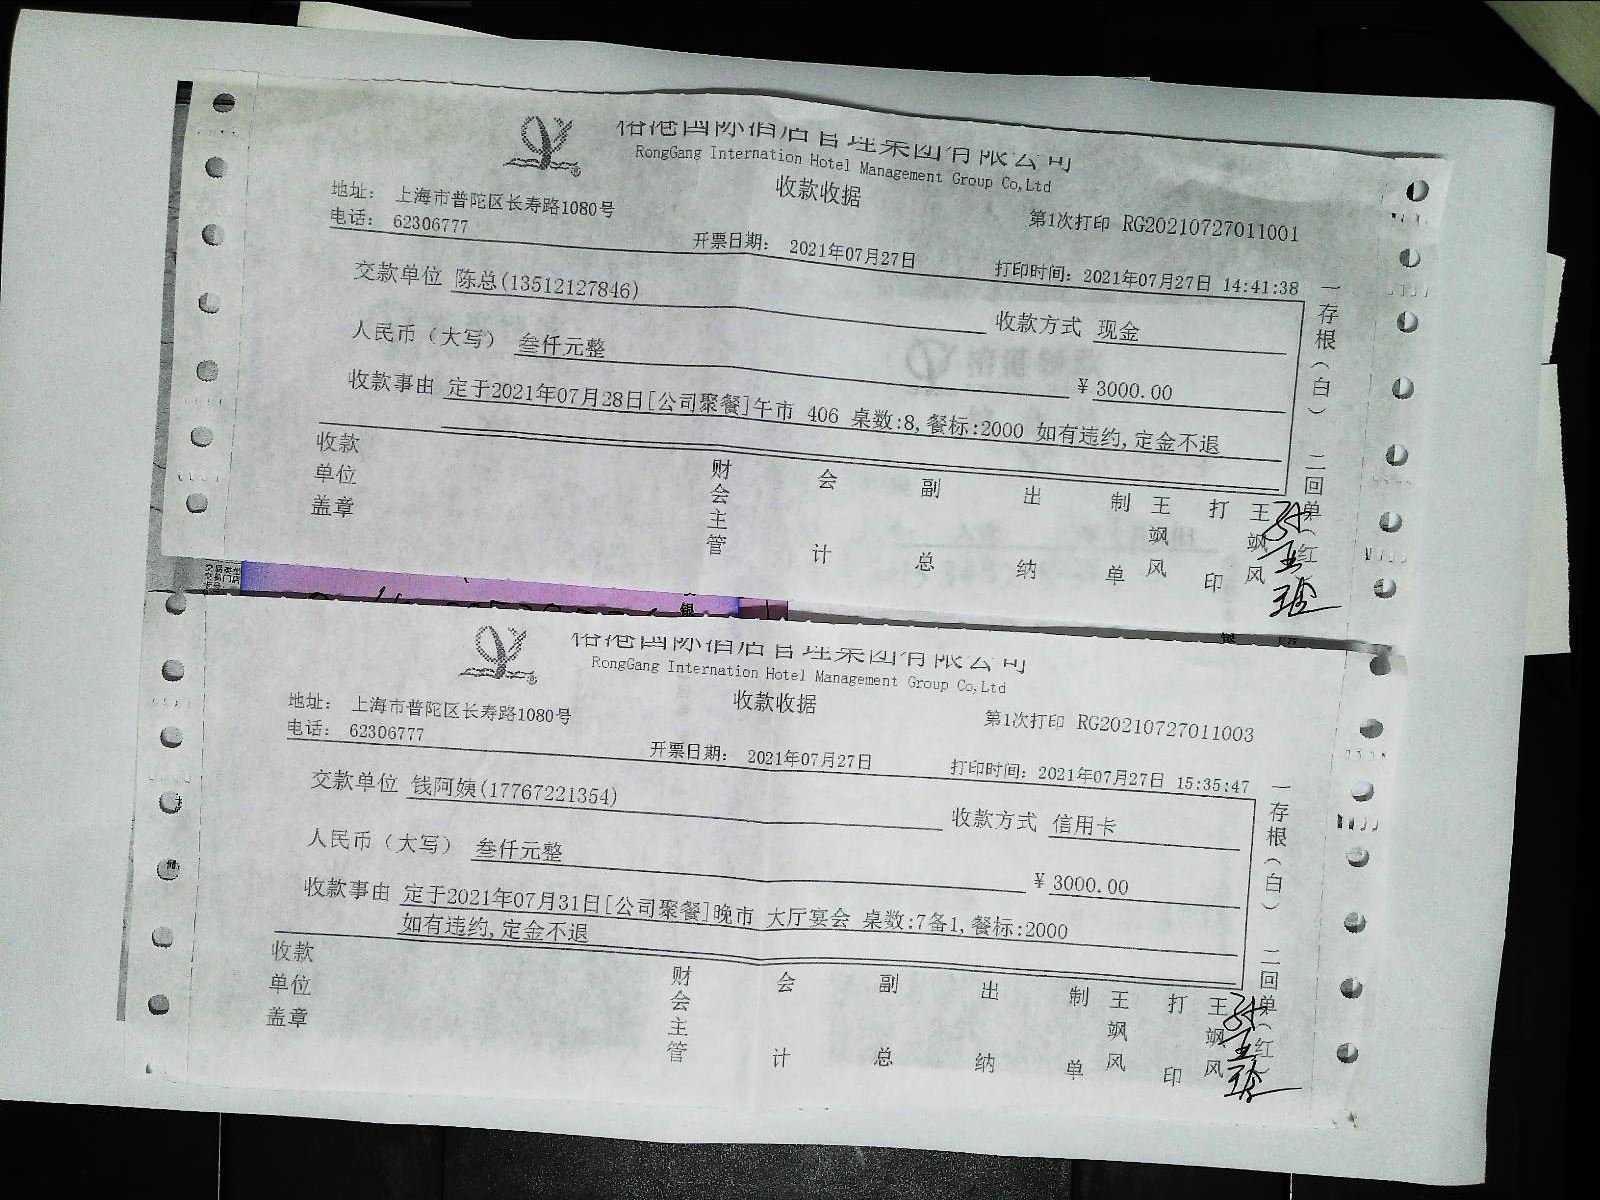 榕港国际酒店管理集团有限公司
RongGang Internation Hotel Management Group Co,Ltd
收款收据
地址： 上海市普陀区长寿路1080号
电话： 62306777
第1次打印 RG20210727011001
开票日期： 2021年07月27日
打印时间：2021年07月27日 14:41:38
交款单位 陈总(13512127846)
收款方式 现金
人民币（大写） 叁仟元整
￥3000.00
收款事由 定于2021年07月28日[公司聚餐]午市 406 桌数:8,餐标:2000 如有违约,定金不退
收款单位盖章
财会主管 会计 副总 出纳 制单 王飒风 打印 王飒风
一存根（白） 二回单（红）
榕港国际酒店管理集团有限公司
RongGang Internation Hotel Management Group Co,Ltd
收款收据
地址： 上海市普陀区长寿路1080号
电话： 62306777
第1次打印 RG20210727011003
开票日期： 2021年07月27日
打印时间：2021年07月27日 15:35:47
交款单位 钱阿姨(17767221354)
收款方式 信用卡
人民币（大写） 叁仟元整
￥3000.00
收款事由 定于2021年07月31日[公司聚餐]晚市 大厅宴会 桌数:7备1,餐标:2000
如有违约,定金不退
收款单位盖章
财会主管 会计 副总 出纳 制单 王飒风 打印 王飒风
一存根（白） 二回单（红）